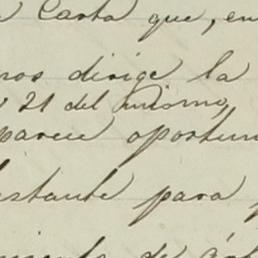 Carta que, en
nos dirige la
21 del mismo,
parece oportun
bastante para
miento de